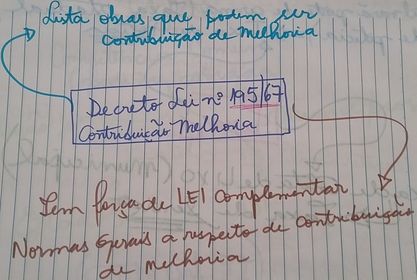 Lista obras que podem ser
contribuição de melhoria
Decreto Lei nº 195/67
Contribuição Melhoria
Tem força de LEI complementar
Normas Gerais a respeito de contribuição
de melhoria